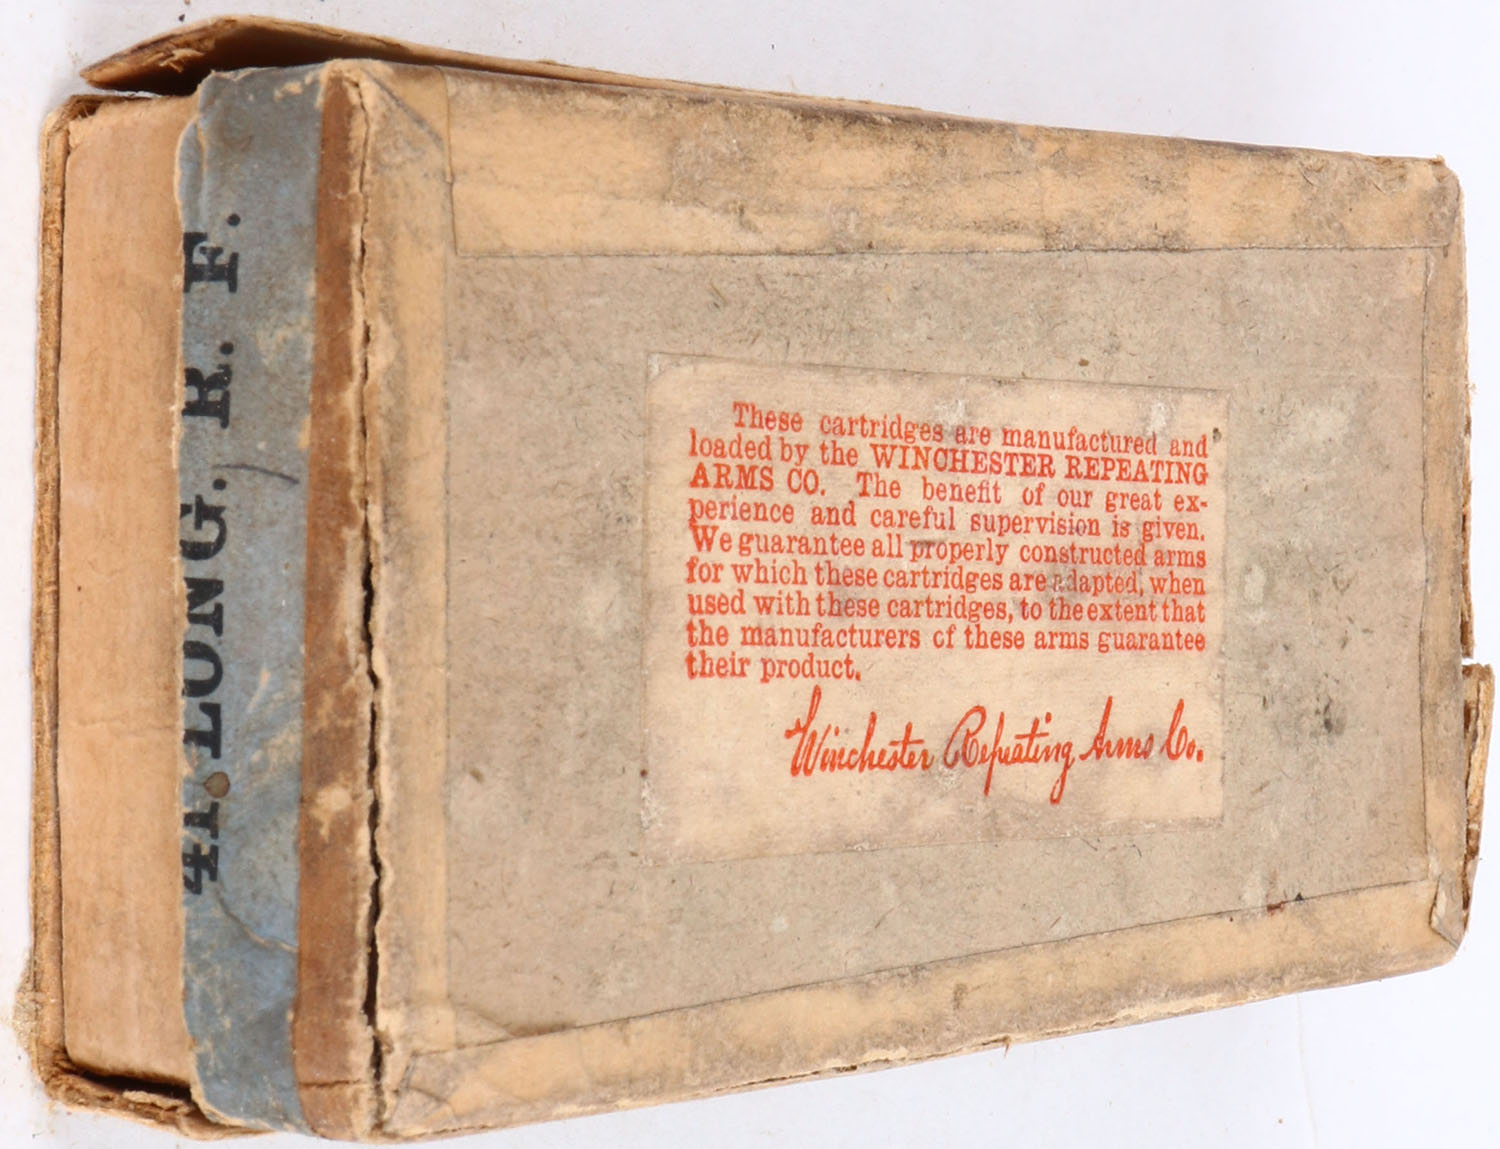 41 LONG. R. F.
These cartridges are manufactured and
loaded by the WINCHESTER REPEATING
ARMS CO. The benefit of our great ex-
perience and careful supervision is given.
We guarantee all properly constructed arms
for which these cartridges are adapted, when
used with these cartridges, to the extent that
the manufacturers of these arms guarantee
their product.
Winchester Repeating Arms Co.